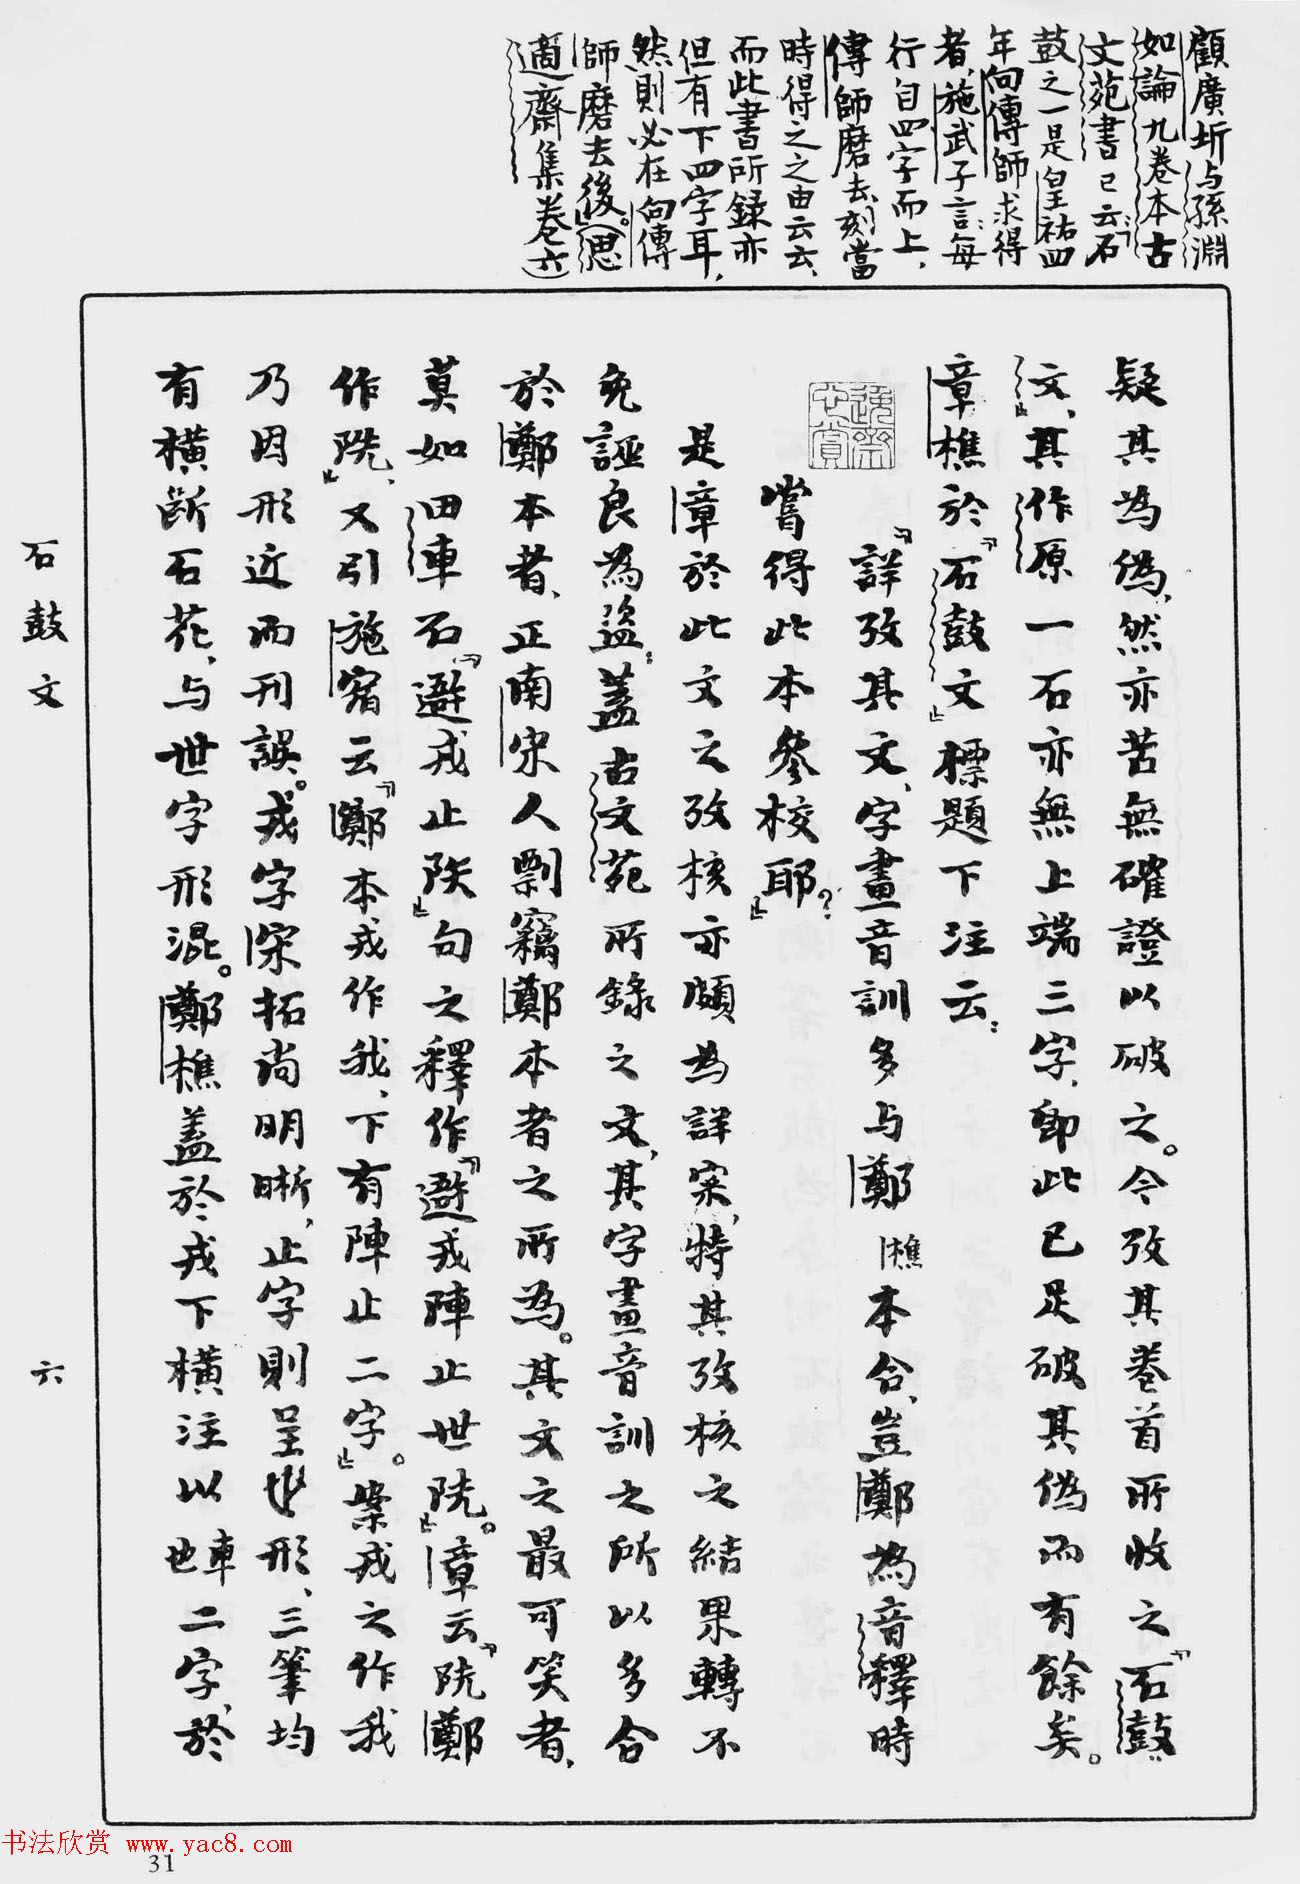 顧廣圻与孫淵
如論九卷本古
文苑書已云:「石
鼓之一是皇祐四
年向傳師求得
者,施武子言:每
行自四字而上,
傳師磨去,刻當
時得之之由云云,
而此書所錄亦
但有下四字耳,
然則必在向傳
師磨去後。」(思
適齋集卷六)
疑其為偽,然亦苦無確證以破之。今攷其卷首所收之「石鼓
文」,其作原一石亦無上端三字,即此已足破其偽而有餘矣。
章樵於「石鼓文」標題下注云:
「詳攷其文,字畫音訓多与鄭樵本合,豈鄭為音釋時
嘗得此本參校耶?」
是章於此文之攷核亦頗為詳宷,特其攷核之結果轉不
免誣良為盜:蓋古文苑所錄之文,其字畫音訓之所以多合
於鄭本者,正南宋人剽竊鄭本者之所為。其文之最可笑者,
莫如田車石「避戎止陕」句之釋作「避戎陣止世阬」。章云:「阬鄭
作陒」,又引施宿云:「鄭本戎作我,下有陣止二字。」案戎之作我
乃因形近而刊誤。戎字宋拓尚明晰,止字則呈形,三筆均
有橫斷石花,与世字形混。鄭樵蓋於戎下橫注以車也二字,於
石鼓文
六
书法欣赏 www.yac8.com
31